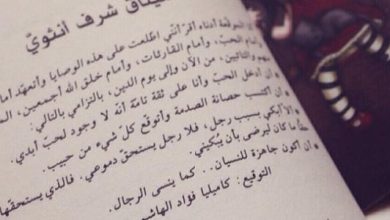 ميثاق شرف أنثويّ
الموقّعة أدناه أقرّ أنّني اطّلعت على هذه الوصايا وأتعهّد أمام
وأمام الحبّ، وأمام القارئات، وأمام خلق الله أجمعين،
والتائبين، من الآن وإلى يوم الدين، بالتزامي بالتالي:
أن أدخل الحبّ وأنا على ثقة تامّة أنه لا وجود لحبّ أبدي.
أن أكتسب حصانة الصدمة وأتوقّع كلّ شيء من حبيب.
ألّا أبكي بسبب رجل، فلا رجل يستحق دموعي. فالذي يستحقّها
حقاً ما كان ليرضى بأن يُبكيني.
أن أكون جاهزة للنسيان.. كما ينسى الرجال.
التوقيع: كاميليا فؤاد الهاشم